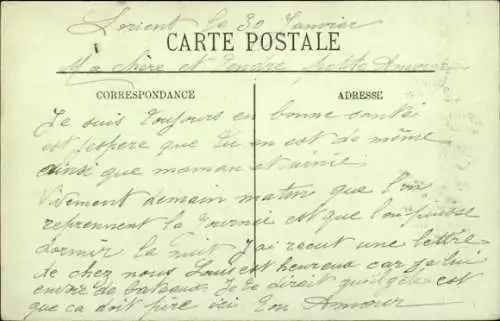 Lorient le 30 Janvier
CARTE POSTALE
Ma chère et tendre petite Amour
CORRESPONDANCE
ADRESSE
Je suis toujours en bonne santé
et j'espere que tu en est de même
ainsi que maman et
Vivement demain matin que l'on
reprennent la tournée est que l'on puisse
dormir la nuit J'ai recut une lettre
de chez nous Louis est heureux car je lui
envoie de bateaux Je te dirait
que ca doit être ici Ton Amour